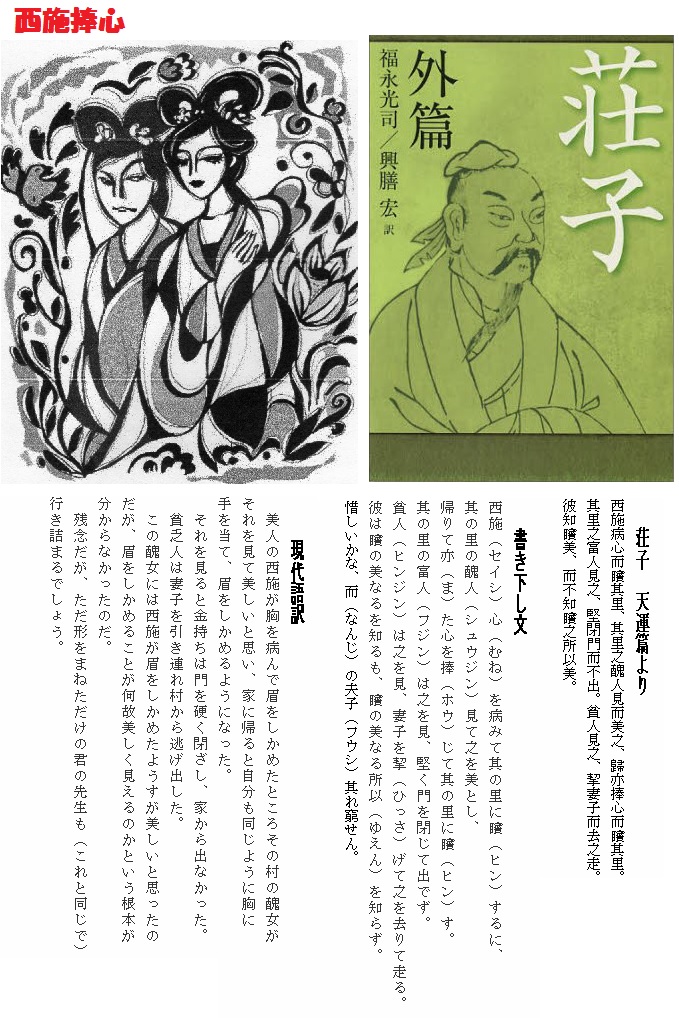 西施捧心
荘子
外篇
福永光司／興膳 宏 訳
荘子　天運篇より
西施病心而矉其里、其里之醜人見而美之、歸亦捧心而矉其里。
其里之富人見之、堅閉門而不出。貧人見之、挈妻子而去之走。
彼知矉美、而不知矉之所以美。
書き下し文
西施（セイシ）心（むね）を病みて其の里に矉（ヒン）するに、
其の里の醜人（シュウジン）見て之を美とし、
帰りて亦（ま）た心を捧（ホウ）じて其の里に矉（ヒン）す。
其の里の富人（フジン）は之を見、堅く門を閉じて出でず。
貧人（ヒンジン）は之を見、妻子を挈（ひっさ）げて之を去りて走る。
彼は矉の美なるを知るも、矉の美なる所以（ゆえん）を知らず。
惜しいかな、而（なんじ）の夫子（フウシ）其れ窮せん。
現代語訳
美人の西施が胸を病んで眉をしかめたところその村の醜女が
それを見て美しいと思い、家に帰ると自分も同じように胸に
手を当て、眉をしかめるようになった。
それを見ると金持ちは門を硬く閉ざし、家から出なかった。
貧乏人は妻子を引き連れ村から逃げ出した。
この醜女には西施が眉をしかめたようすが美しいと思ったの
だが、眉をしかめることが何故美しく見えるのかという根本が
分からなかったのだ。
残念だが、ただ形をまねただけの君の先生も（これと同じで）
行き詰まるでしょう。